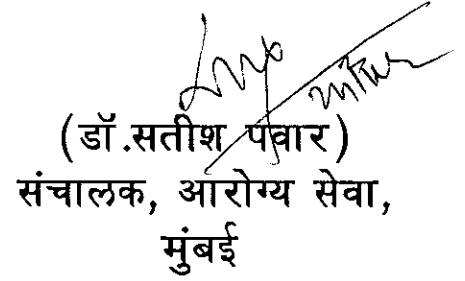 (डॉ.सतीश पवार)
संचालक, आरोग्य सेवा,
मुंबई